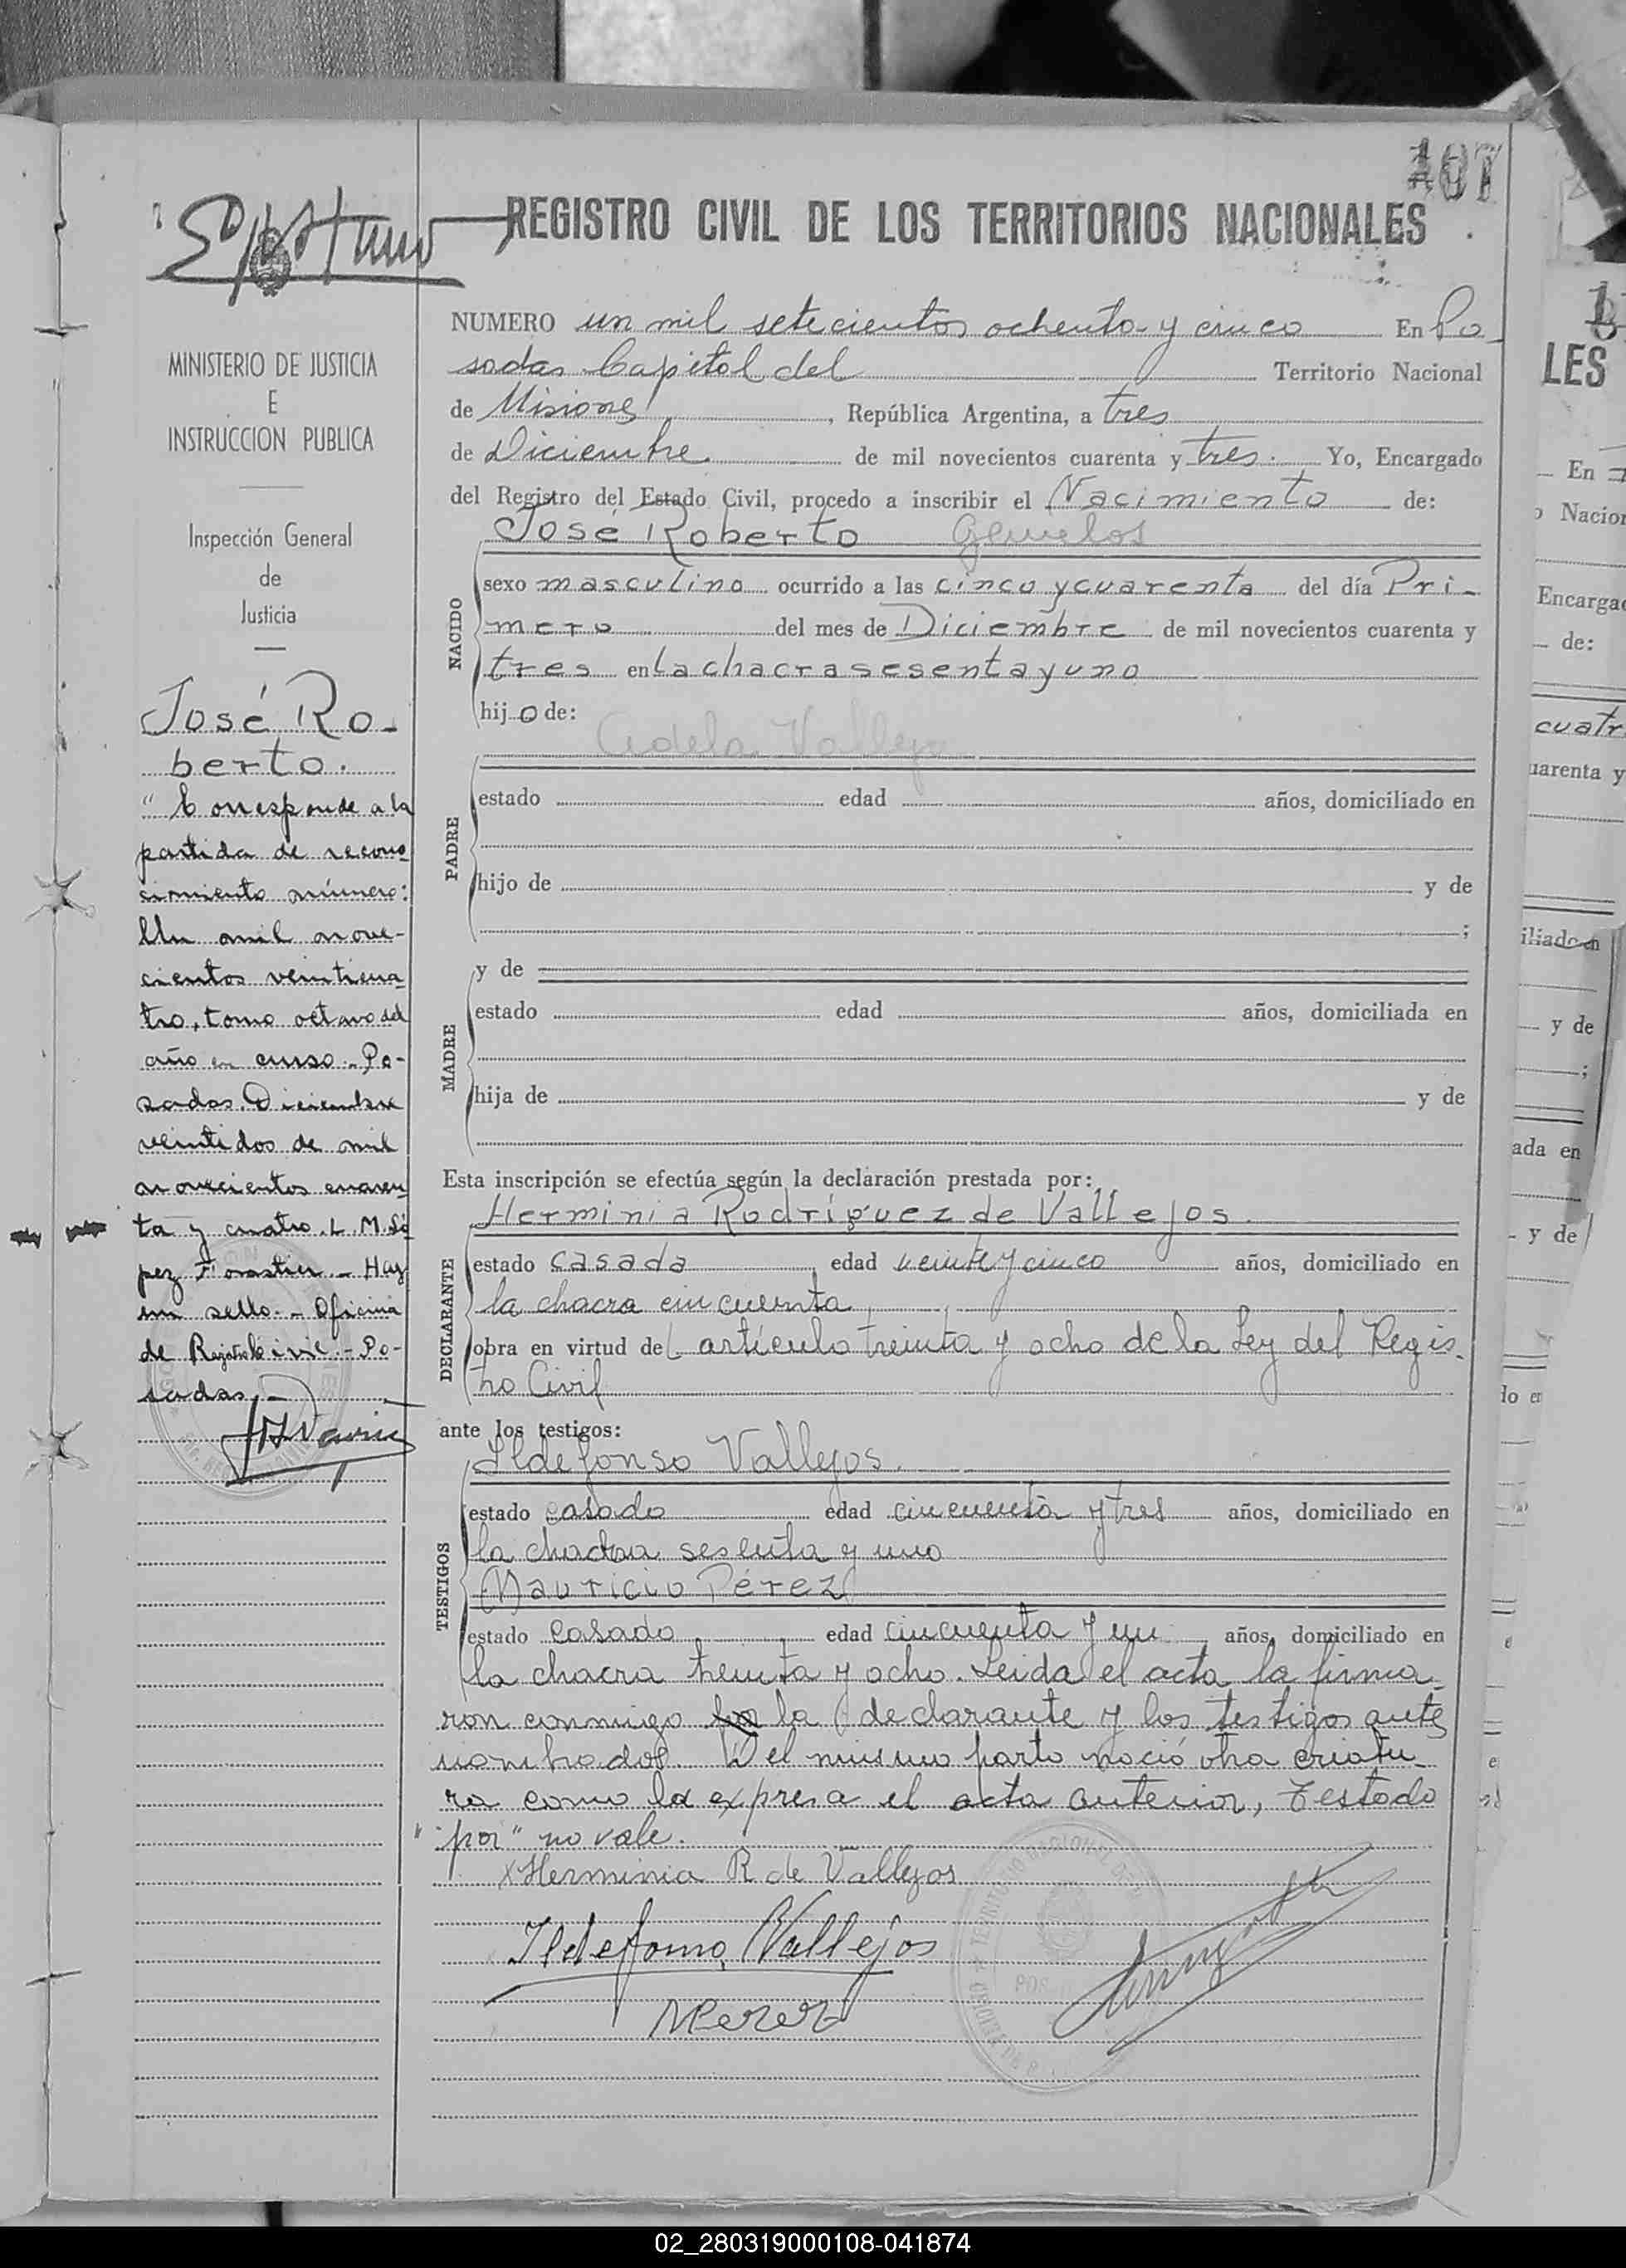 107
REGISTRO CIVIL DE LOS TERRITORIOS NACIONALES
MINISTERIO DE JUSTICIA
E
INSTRUCCION PUBLICA
Inspección General
de
Justicia
José Ro-
berto.
"Corresponde a la
partida de recono
cimiento número:
Un mil nove-
cientos veinticua
tro, tomo octavo del
año en curso.- Po-
sadas, Diciembre
veintidos de mil
novecientos cuaren
ta y cuatro. L. M. Ló
pez Forastier.- Hay
un sello.- Oficina
de Registro Civil.- Po-
sadas.-
NUMERO un mil setecientos ochenta y cinco En Po
sadas Capital del Territorio Nacional
de Misiones, República Argentina, a tres
de Diciembre de mil novecientos cuarenta y tres. Yo, Encargado
del Registro del Estado Civil, procedo a inscribir el Nacimiento de:
José Roberto Gemelos
NACIDO
sexo masculino ocurrido a las cinco y cuarenta del día Pri-
mero del mes de Diciembre de mil novecientos cuarenta y
tres en la chacra sesenta y uno
hijo de:
Adela Vallejo
PADRE
estado edad años, domiciliado en
hijo de y de
;
MADRE
y de
estado edad años, domiciliada en
hija de y de
Esta inscripción se efectúa según la declaración prestada por:
Herminia Rodríguez de Vallejos.
DECLARANTE
estado casada edad veinte y cinco años, domiciliado en
la chacra cincuenta
obra en virtud del artículo treinta y ocho de la Ley del Regis-
tro Civil
ante los testigos:
Ildefonso Vallejos.
TESTIGOS
estado casado edad cincuenta y tres años, domiciliado en
la chacra sesenta y uno
Mauricio Pérez
estado casado edad cincuenta y un años, domiciliado en
la chacra treinta y ocho. Leida el acta la firma-
ron conmigo la declarante y los testigos ante
nombrados. Del mismo parto nació otra criatu-
ra como la expresa el acta anterior, Testado
"por" no vale.
Herminia R de Vallejos
Ildefonso Vallejos
MPerez
LES
En
Nacion
Encargad
de:
cuatr
uarenta y
iliado en
y de
;
ada en
y de
02_280319000108-041874